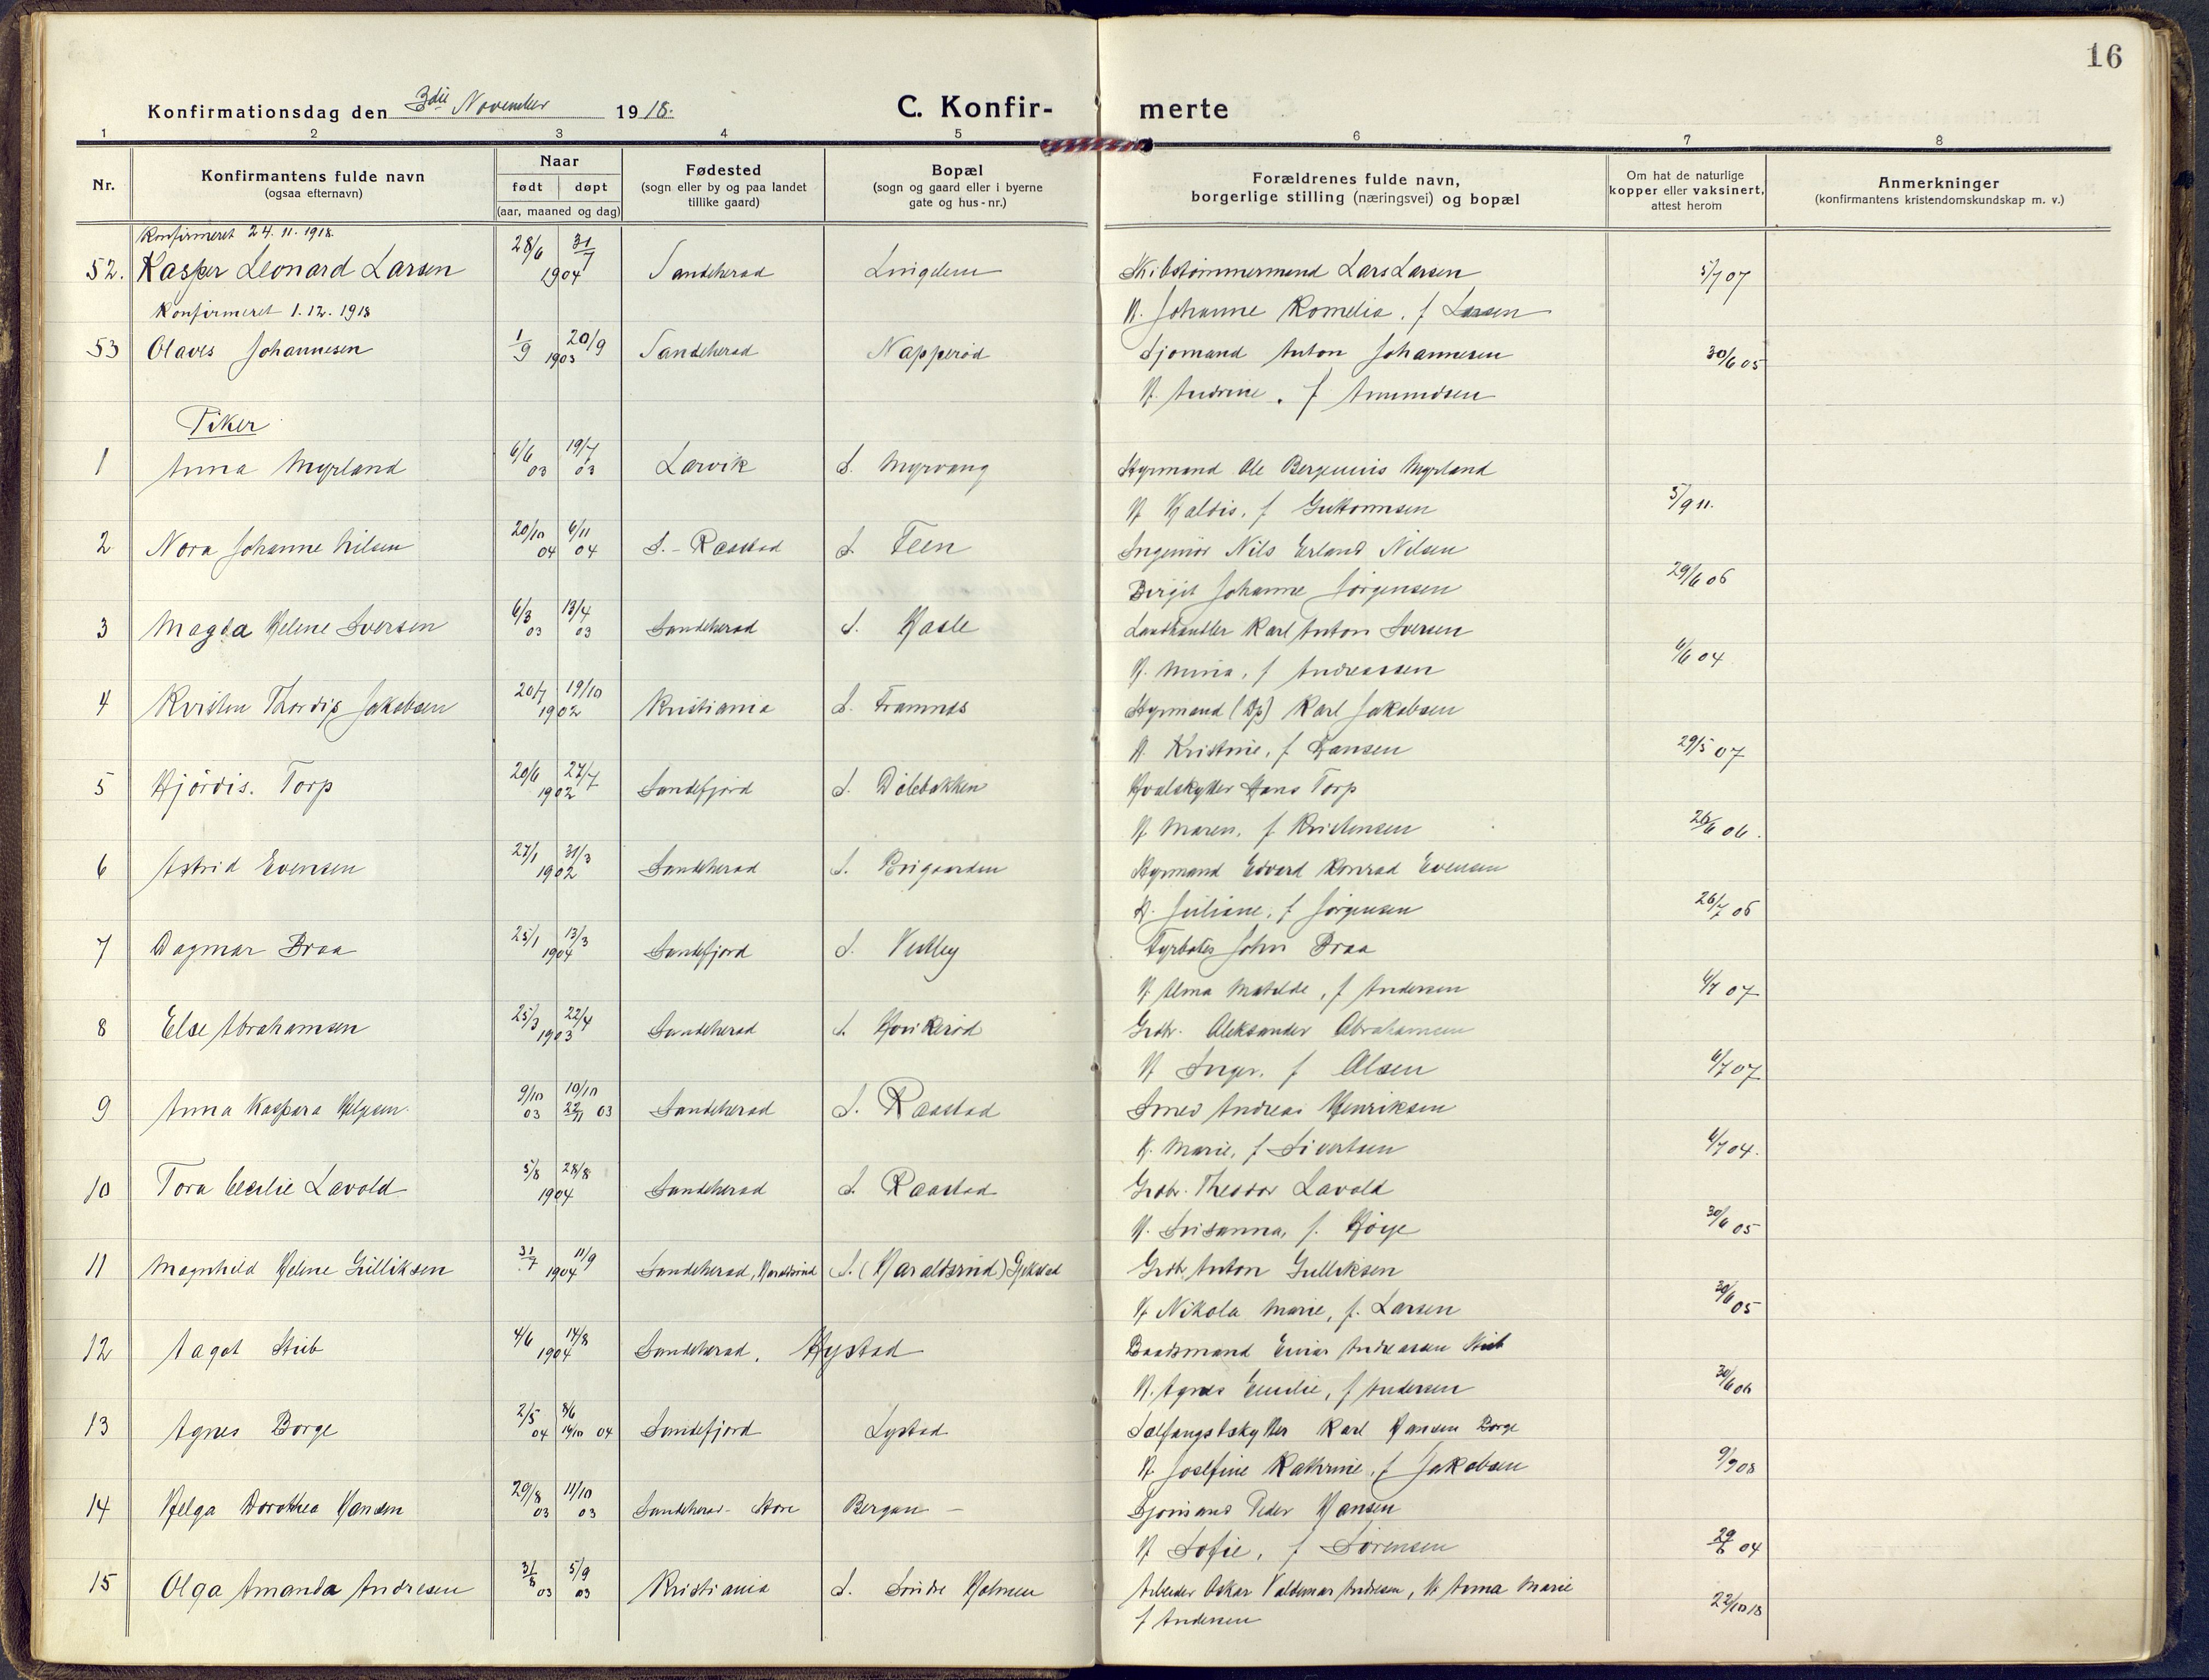 16
Konfirmationsdag den 3die November 1918.
C. Konfir- merte
1 2 3 4 5 6 7 8
Nr.
Konfirmantens fulde navn
(ogsaa efternavn)
Naar
født døpt
(aar, maaned og dag)
Fødested
(sogn eller by og paa landet
tillike gaard)
Bopæl
(sogn og gaard eller i byerne
gate og hus-nr.)
Forældrenes fulde navn,
borgerlige stilling (næringsvei) og bopæl
Om hat de naturlige
kopper eller vaksinert,
attest herom
Anmerkninger
(konfirmantens kristendomskundskap m. v.)
Konfirmeret 24. 11. 1918.
52. Kasper Leonard Larsen 28/6 31/7 1904 Sandeherad Lingelem Skibstømmermand Lars Larsen 5/7 07
Konfirmeret 1. 12. 1918
H. Johanne Kornelia, f Larsen
53 Olaves Johannesen 1/9 20/9 1903 Sandeherad Napperød Sjømand Anton Johannesen 30/6 05
H. Andrine, f Amundsen
Piker
1 Anna Myrland 6/6 03 19/7 03 Larvik S. Myrvang Styrmand Ole Bergenius Myrland
H Haldis, f Guttormsen 5/9 11.
2 Nora Johanne Nilsen 20/10 04 6/11 04 S. - Raastad S. Feen Ingeniør Nils Erland Nilsen
Birgit Johanne Jørgensen 29/6 06
3 Magda Helene Iversen 6/3 03 13/4 03 Sandeherad S. Hasle Landhandler Karl Anton Iversen
H. Mina, f Andreassen 6/6 04
4 Kirsten Thordis Jakobsen 20/7 19/10 1902 Kristiania S. Framnæs Styrmand (Dp) Karl Jakobsen
H. Kristine, f Hansen 29/5 07
5 Hjördis. Torp 20/6 27/7 1902 Sandefjord S. Dølebakken Hvalskytter Hans Torp
H Maren, f Kristensen 26/6 06.
6 Astrid Evensen 27/1 31/3 1902 Sandeherad S. Styrmand Edvard Konrad Evensen
H. Juliane, f Jørgensen 26/7 06
7 Dagmar Braa 25/1 13/3 1904 Sandefjord S. Vestley Fyrbøter John Braa
H Alma Matilde, f Andersen 6/7 07
8 Else Abrahamsen 25/3 22/4 1903 Sandeherad S. Hovikerød Grdbr. Aleksander Abrahamsen
H Inger, f Olsen 6/7 07
9 Anna Kaspara Helgesen 9/10 03 10/10 22/11 03 Sandeherad S. Raastad Smed Andreas Henriksen
H. Marie, f Sivertsen 6/7 04.
10 Tora Cecilie Lavold 5/8 28/8 1904 Sandeherad S. Raastad Grdbr. Theodor Lavold
H. Susanna, f. Høye 30/6 05
11 Magnhild Helene Gulliksen 31/7 11/9 1904 Sandeherad, Haraldsrud S. (Haraldsrud) Gjekstad Grdbr. Anton Gulliksen
H Nikola Marie, f. Larsen 30/6 05
12 Aagot Stub 4/6 14/8 1904 Sandeherad, Hystad Baadsmand Einar Andreassen Stub
H. Agnes Emilie, f Andersen 30/6 06
13 Agnes Borge 2/5 04 8/6 14/10 04 Sandefjord Lystad Sælfangstskytter Karl Hansen Borge
H Josefine Kathrine, f Jakobsen 9/9 08
14 Helga Dorothea Hansen 29/8 03 11/10 03 Sandeherad - Store Bergan - Sjømand Peder Hansen
H Sofie, f Sørensen 29/6 04
15 Olga Amanda Andresen 31/8 03 5/9 03 Kristiania S. Søndre Holmen Arbeider Oskar Valdemar Andresen, H Anna Marie
f Andersen 22/10 18